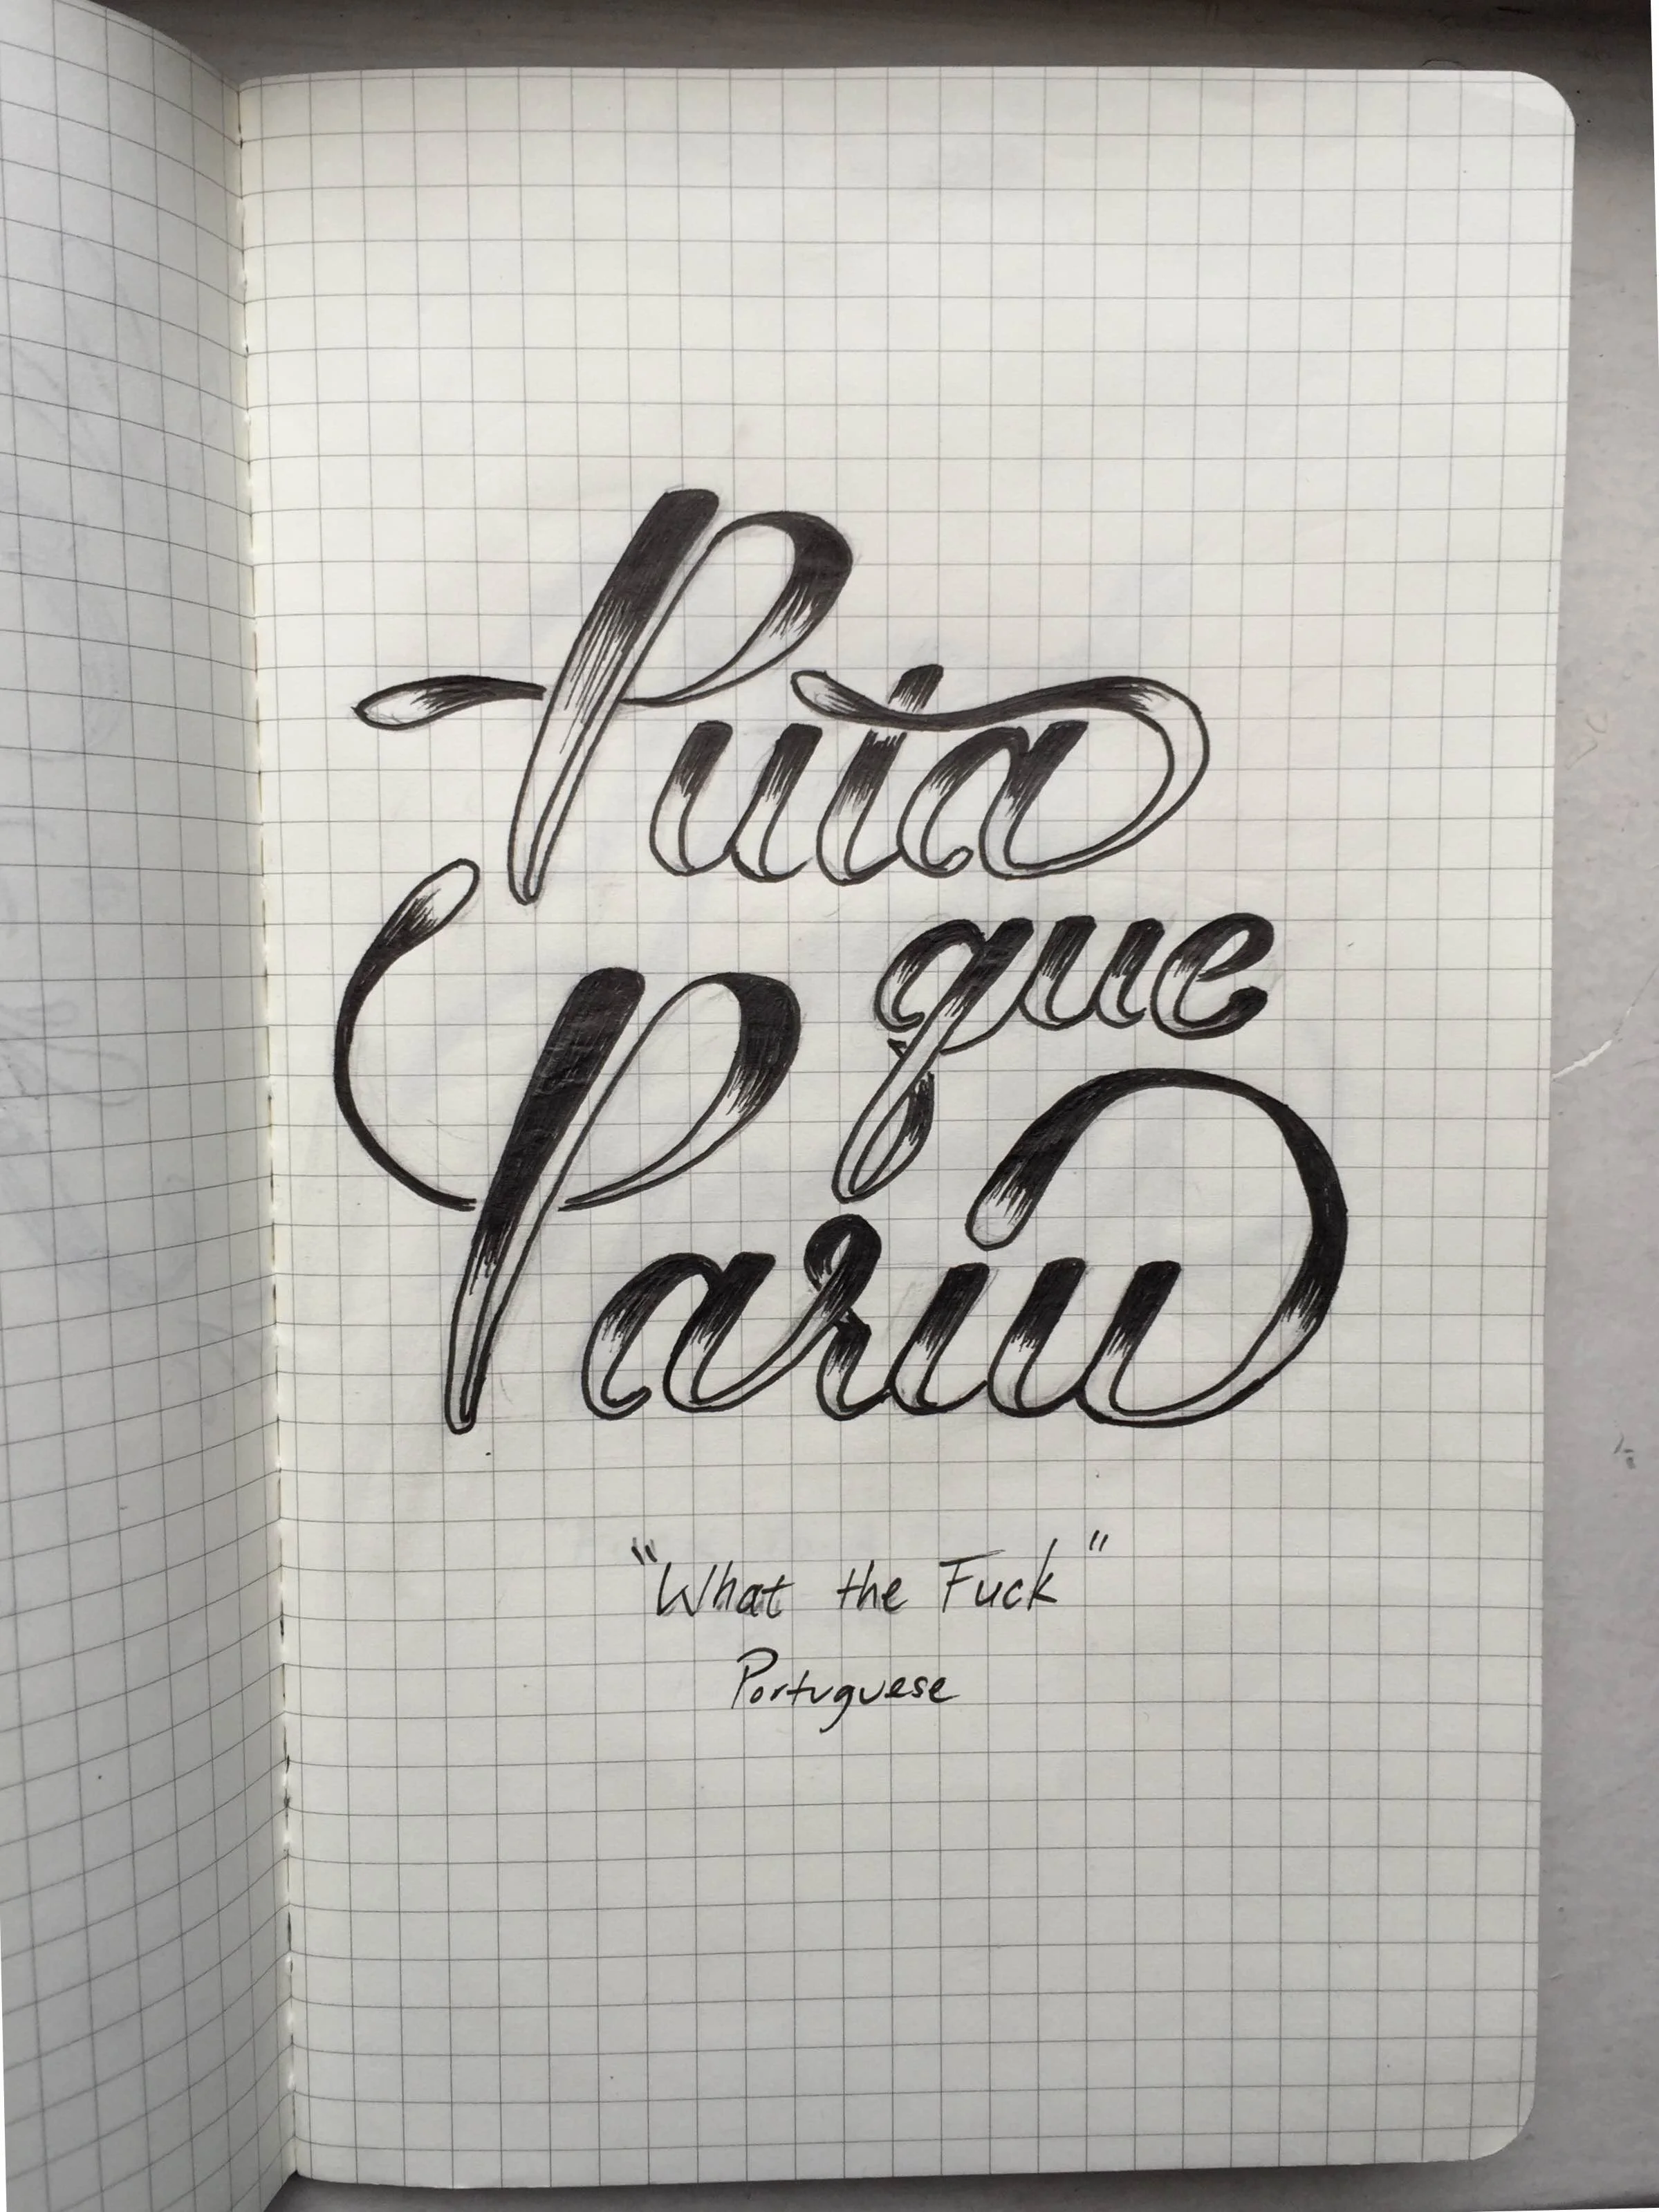 Puta
que
Pariu
"What the Fuck"
Portuguese